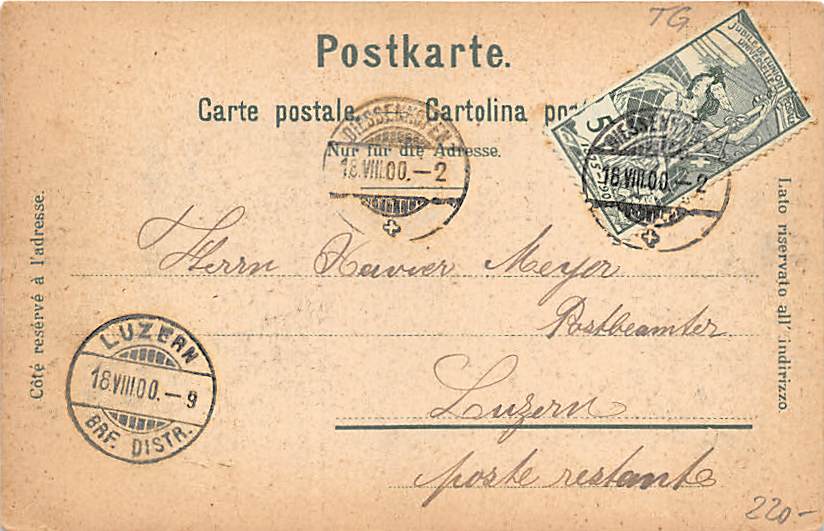 TG
Postkarte.
Carte postale. Cartolina post
Nur für die Adresse.
JUBILÉ DE L'UNION
UNIVERSELLE
5
1875-1900
DIESSENHOFEN
18.VIII.00.-2
DIESSENHOFEN
18.VIII.00.-2
Côté reservé à l'adresse.
Lato riservato all' indirizzo
Herrn Xavier Meyer
Postbeamter
Luzern
poste restante
LUZERN
18.VIII.00.-9
BRF. DISTR.
220-